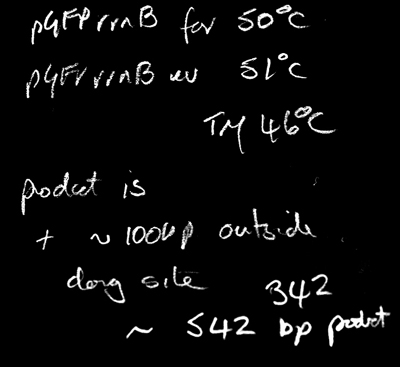 pGFPrrnB for 50°C
pGFPrrnB rev 51°C
TM 46°C
product is
+ ~100bp outside
site 342
~ 542 bp product